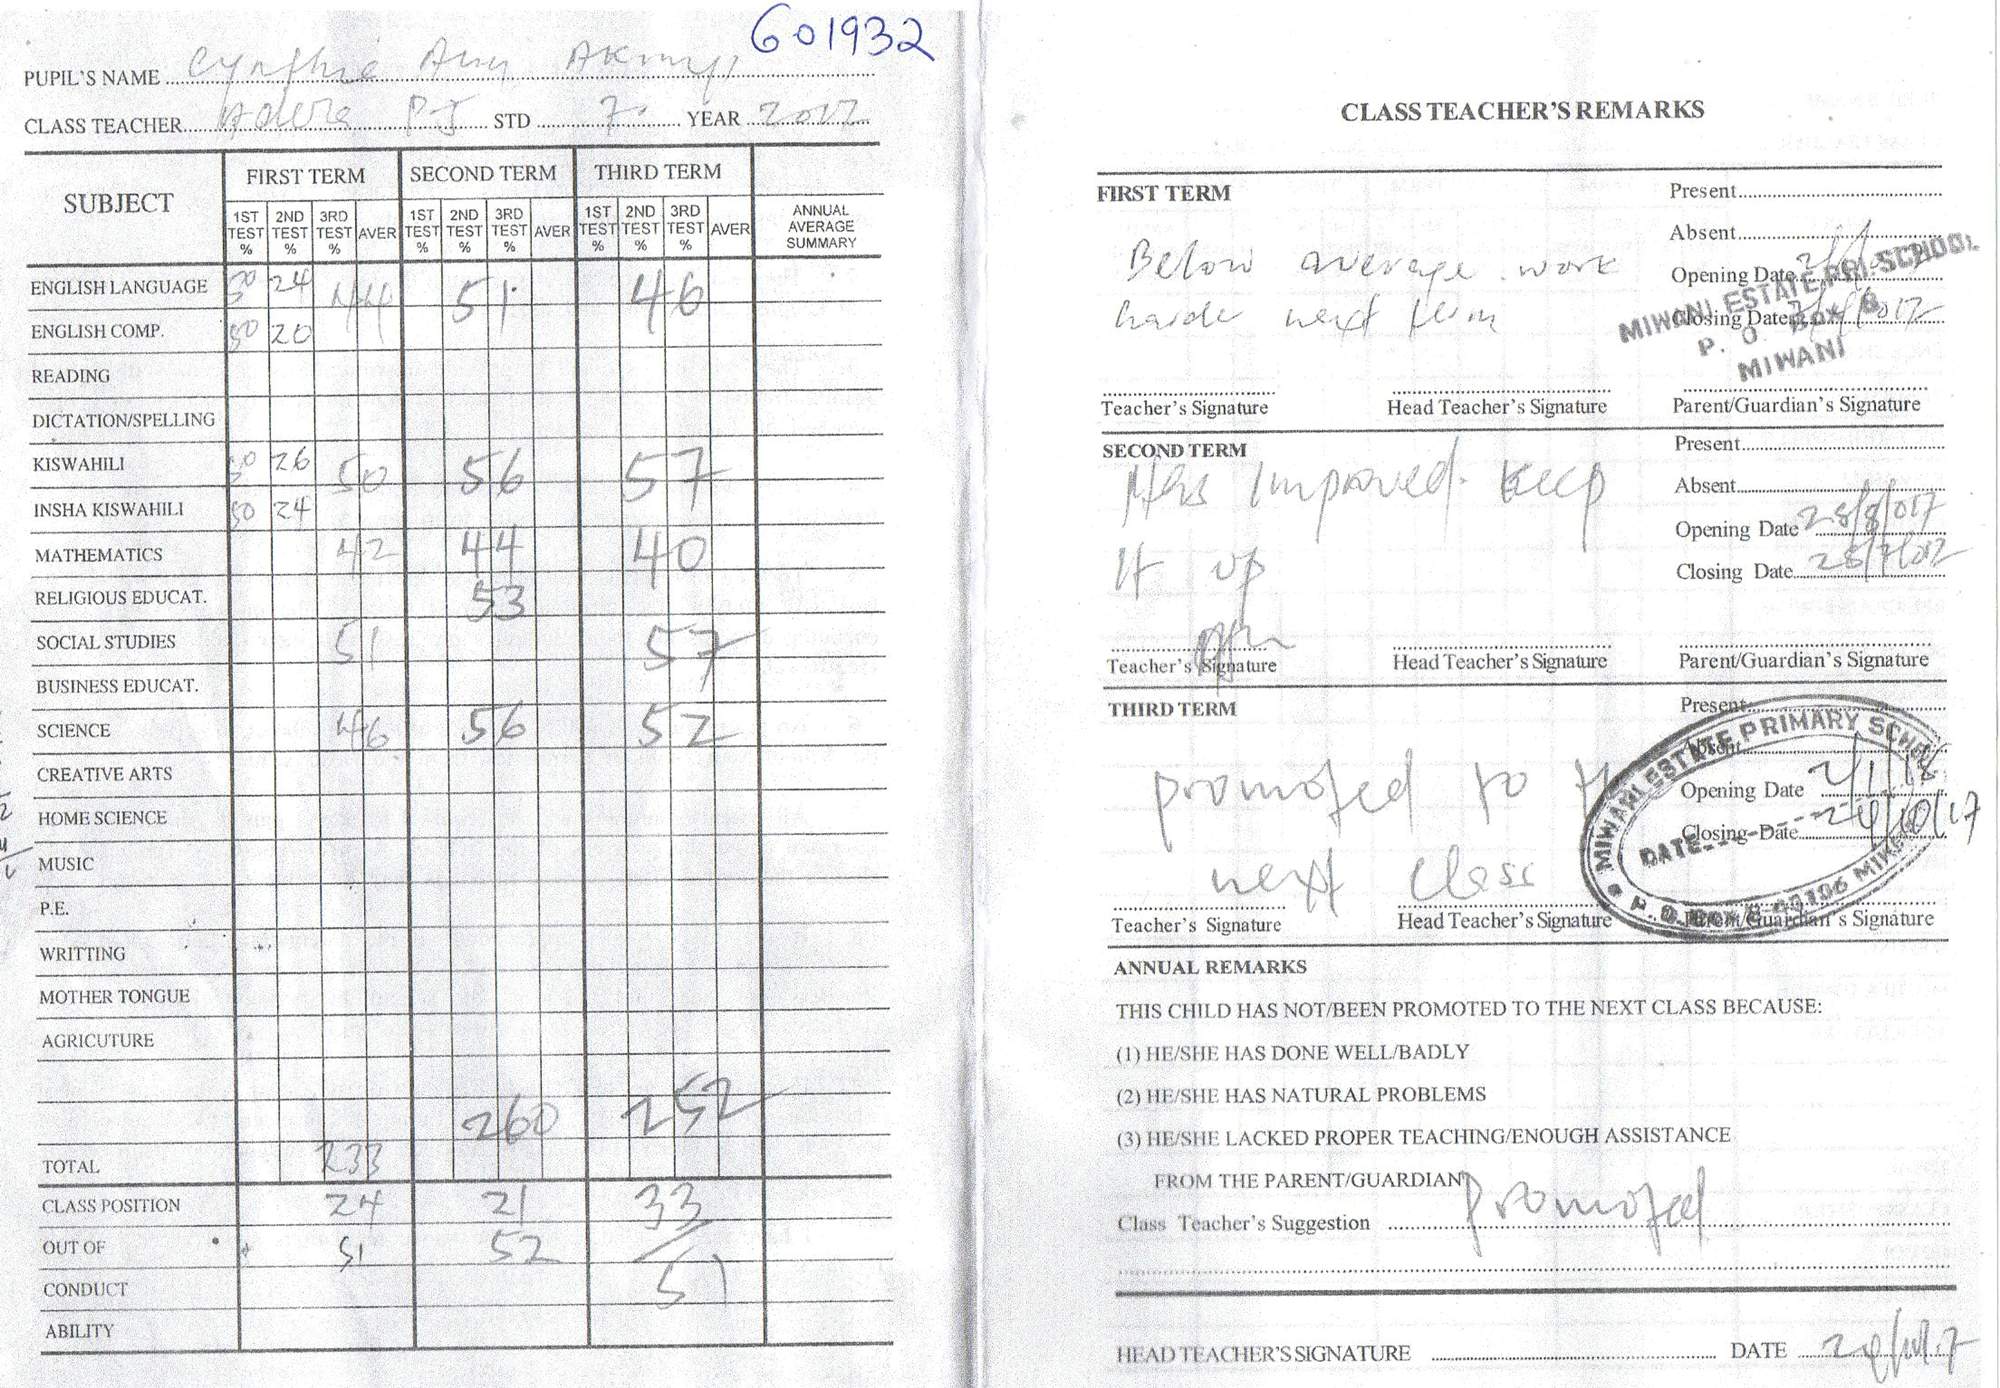 601932
PUPIL'S NAME Cynthia Ann
CLASS TEACHER Adera P.J STD 7 YEAR 2017
SUBJECT FIRST TERM SECOND TERM THIRD TERM
1ST TEST % 2ND TEST % 3RD TEST % AVER 1ST TEST % 2ND TEST % 3RD TEST % AVER 1ST TEST % 2ND TEST % 3RD TEST % AVER ANNUAL AVERAGE SUMMARY
ENGLISH LANGUAGE 50 24 44 51 46
ENGLISH COMP. 50 20
READING
DICTATION/SPELLING
KISWAHILI 50 26 50 56 57
INSHA KISWAHILI 50 24
MATHEMATICS 42 44 40
RELIGIOUS EDUCAT. 53
SOCIAL STUDIES 51 57
BUSINESS EDUCAT.
SCIENCE 46 56 52
CREATIVE ARTS
HOME SCIENCE
MUSIC
P.E.
WRITTING
MOTHER TONGUE
AGRICUTURE
260 252
TOTAL 233
CLASS POSITION 24 21 33
OUT OF 51 52
CONDUCT 51
ABILITY
CLASS TEACHER'S REMARKS
FIRST TERM
Present
Absent
Opening Date
Closing Date
Below average work
harder next term
MIWANI ESTATE PRI. SCHOOL
P. O. BOX 8
MIWANI
Teacher's Signature Head Teacher's Signature Parent/Guardian's Signature
SECOND TERM
Present
Absent
Opening Date 28/8/017
Closing Date 28/7/017
Has Improved. Keep
It up
Teacher's Signature Head Teacher's Signature Parent/Guardian's Signature
THIRD TERM
Present
Absent
Opening Date 2/1/18
Closing Date
promoted to the
next class
MIWANI ESTATE PRIMARY SCHOOL
DATE
Teacher's Signature Head Teacher's Signature Parent/Guardian's Signature
ANNUAL REMARKS
THIS CHILD HAS NOT/BEEN PROMOTED TO THE NEXT CLASS BECAUSE:
(1) HE/SHE HAS DONE WELL/BADLY
(2) HE/SHE HAS NATURAL PROBLEMS
(3) HE/SHE LACKED PROPER TEACHING/ENOUGH ASSISTANCE
FROM THE PARENT/GUARDIAN
Class Teacher's Suggestion promoted
HEAD TEACHER'S SIGNATURE DATE